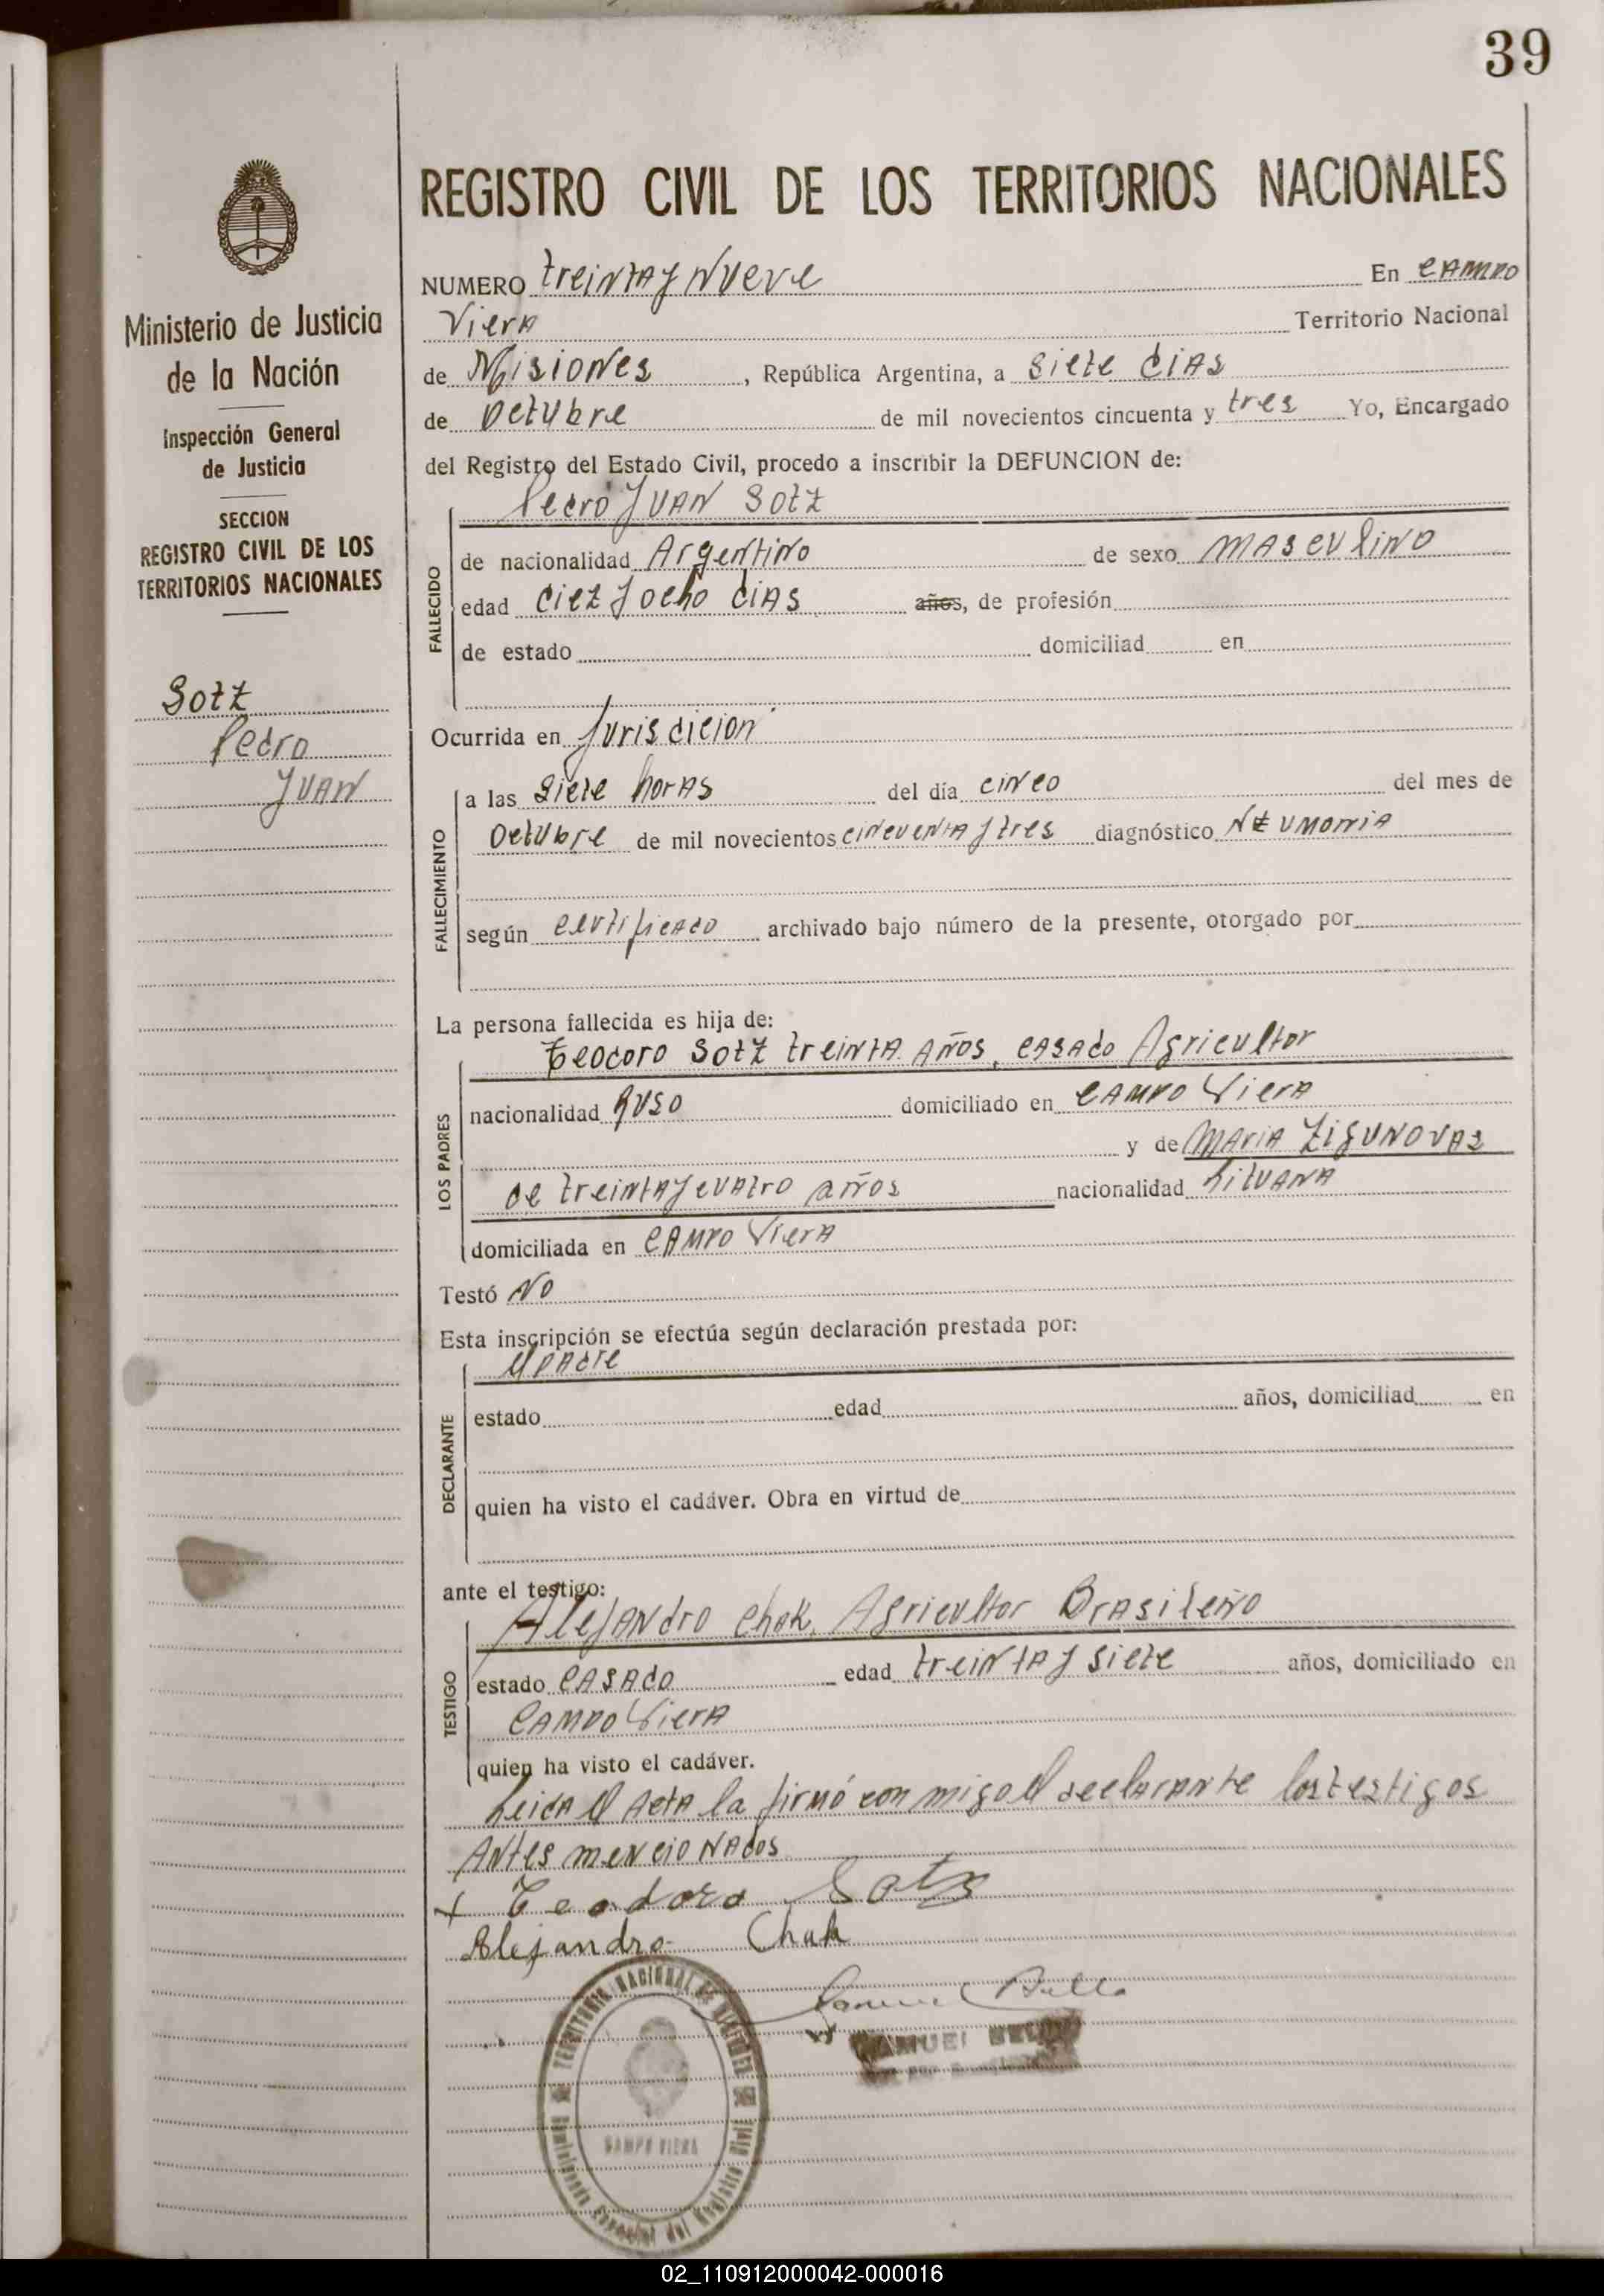 39
REGISTRO CIVIL DE LOS TERRITORIOS NACIONALES
Ministerio de Justicia
de la Nación
Inspección General
de Justicia
SECCION
REGISTRO CIVIL DE LOS
TERRITORIOS NACIONALES
Sotz
Pedro
JUAN
NUMERO treinta y Nueve En CAMPO
Viera Territorio Nacional
de Misiones, República Argentina, a siete dias
de Octubre de mil novecientos cincuenta y tres Yo, Encargado
del Registro del Estado Civil, procedo a inscribir la DEFUNCION de:
Pedro JUAN Sotz
FALLECIDO
de nacionalidad Argentino de sexo masculino
edad diez y ocho dias años, de profesión
de estado domiciliad en
Ocurrida en Jurisdicion
FALLECIMIENTO
a las siete horas del día cinco del mes de
Octubre de mil novecientos cincuenta y tres diagnóstico NEUMONIA
según certificado archivado bajo número de la presente, otorgado por
La persona fallecida es hija de:
LOS PADRES
Teodoro Sotz treinta años, casado Agricultor
nacionalidad Ruso domiciliado en CAMPO Viera
y de MARIA ZIGUNOVAS
de treinta y cuatro años nacionalidad Lituana
domiciliada en CAMPO Viera
Testó No
Esta inscripción se efectúa según declaración prestada por:
DECLARANTE
el padre
estado edad años, domiciliad en
quien ha visto el cadáver. Obra en virtud de
ante el testigo:
TESTIGO
Alejandro Chak, Agricultor Brasileño
estado casado edad treinta y siete años, domiciliado en
CAMPO Viera
quien ha visto el cadáver.
Leida el Acta la firmó con migo el declarante los testigos
Antes mencionados
+ Teodoro Sotz
Alejandro Chak
SAMUEL
TERRITORIO NACIONAL DE MISIONES
CAMPO VIERA
Especial del Registro Civil
02_110912000042-000016